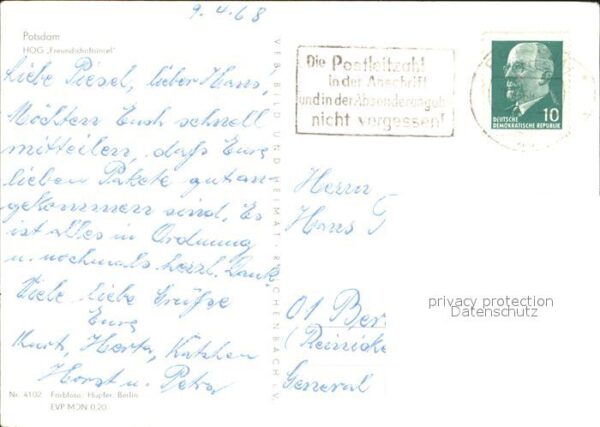 9.4.68
Potsdam
HOG „Freundschaftsinsel"
Liebe Piesel, lieber Hans,
Möchten Euch schnell
mitteilen, daß Eure
lieben Pakete gut an-
gekommen sind. Es
ist alles in Ordnung
u. nochmals herzl. Dank.
Viele liebe Grüße
Eure
Kurt, Herta,
Horst u. Petra
Nr. 4102 Farbfoto: Hüpfer, Berlin
EVP MDN 0,20
VEB BILD UND HEIMAT · REICHENBACH I. V.
Die Postleitzahl
in der Anschrift
und in der Absenderangabe
nicht vergessen!
10
DEUTSCHE
DEMOKRATISCHE REPUBLIK
Herrn
Hans
01 Ber
(Reinicke
General
privacy protection
Datenschutz